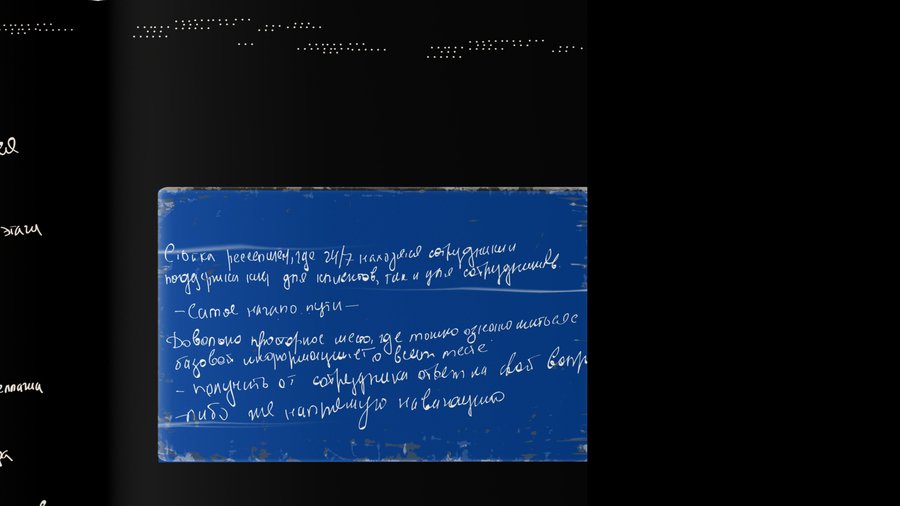 ся
этаж
Стойка ресепшен, где 24/7 находятся сотрудники
поддержки как для клиентов, так и для сотрудников.
—Самое начало пути—
Довольно просторное место, где можно ознакомиться с
базовой информацией о всем месте.
- получить от сотрудника ответ на свой вопр
-либо же напрямую навигацию